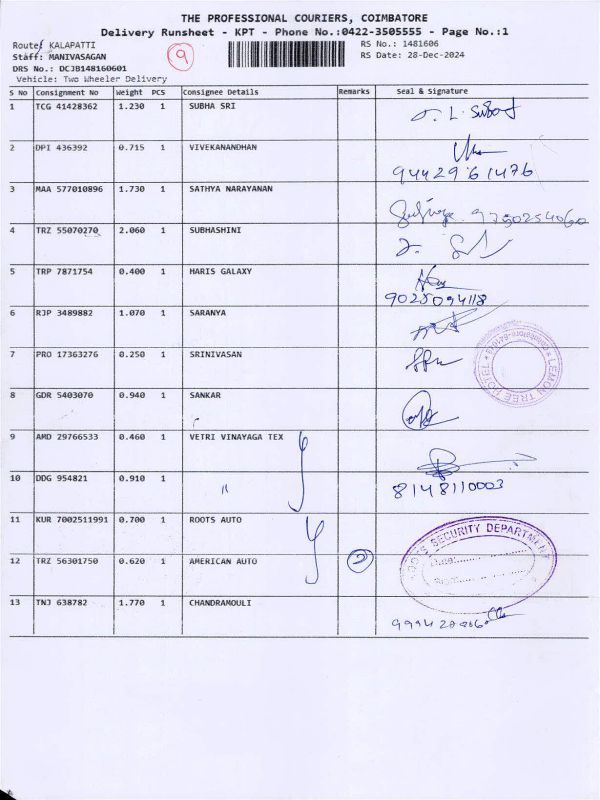 THE PROFESSIONAL COURIERS, COIMBATORE
Delivery Runsheet - KPT - Phone No.:0422-3505555 - Page No.:1
Route: KALAPATTI
9
RS No.: 1481606
Staff: MANIVASAGAN
RS Date: 28-Dec-2024
DRS No.: DCJB148160601
Vehicle: Two Wheeler Delivery
S No Consignment No Weight PCS Consignee Details Remarks Seal & Signature
1 TCG 41428362 1.230 1 SUBHA SRI
2 DPI 436392 0.715 1 VIVEKANANDHAN
9442961476
3 MAA 577010896 1.730 1 SATHYA NARAYANAN
9750254060
4 TRZ 55070270 2.060 1 SUBHASHINI
5 TRP 7871754 0.400 1 HARIS GALAXY
9025094118
6 RJP 3489882 1.070 1 SARANYA
7 PRO 17363276 0.250 1 SRINIVASAN
LEMON TREE HOTEL
8 GDR 5403070 0.940 1 SANKAR
9 AMD 29766533 0.460 1 VETRI VINAYAGA TEX
10 DDG 954821 0.910 1 "
8148110003
11 KUR 7002511991 0.700 1 ROOTS AUTO
SECURITY DEPARTMENT
12 TRZ 56301750 0.620 1 AMERICAN AUTO 2
Date:
13 TNJ 638782 1.770 1 CHANDRAMOULI